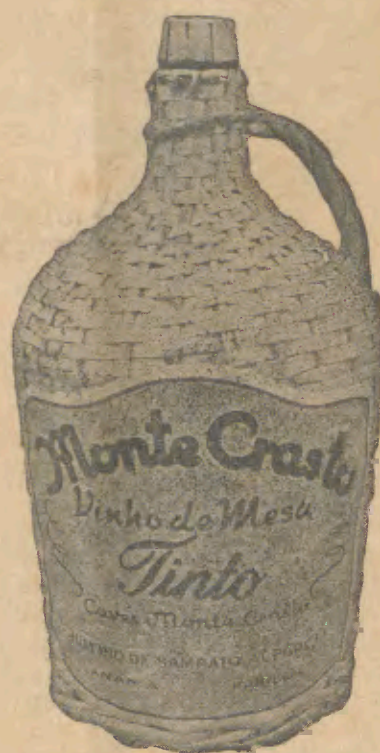 Monte Crasto
Vinho de Mesa
Tinto
Caves Monte Crasto
DE SAMPAIO